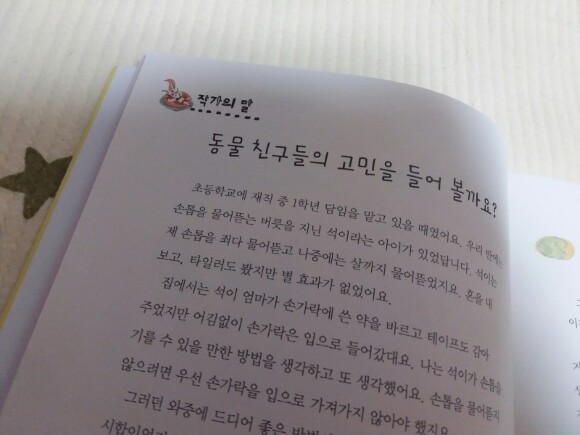 작가의 말
동물 친구들의 고민을 들어 볼까요?
초등학교에 재직 중 1학년 담임을 맡고 있을 때였어요. 우리 반에는
손톱을 물어뜯는 버릇을 지닌 석이라는 아이가 있었답니다. 석이는
제 손톱을 죄다 물어뜯고 나중에는 살까지 물어뜯었지요. 혼을 내
보고, 타일러도 봤지만 별 효과가 없었어요.
집에서는 석이 엄마가 손가락에 쓴 약을 바르고 테이프도 감아
주었지만 어김없이 손가락은 입으로 들어갔대요. 나는 석이가 손톱을
기를 수 있을 만한 방법을 생각하고 또 생각했어요. 손톱을 물어뜯지
않으려면 우선 손가락을 입으로 가져가지 않아야 했지요.
그러던 와중에 드디어 좋은 방법